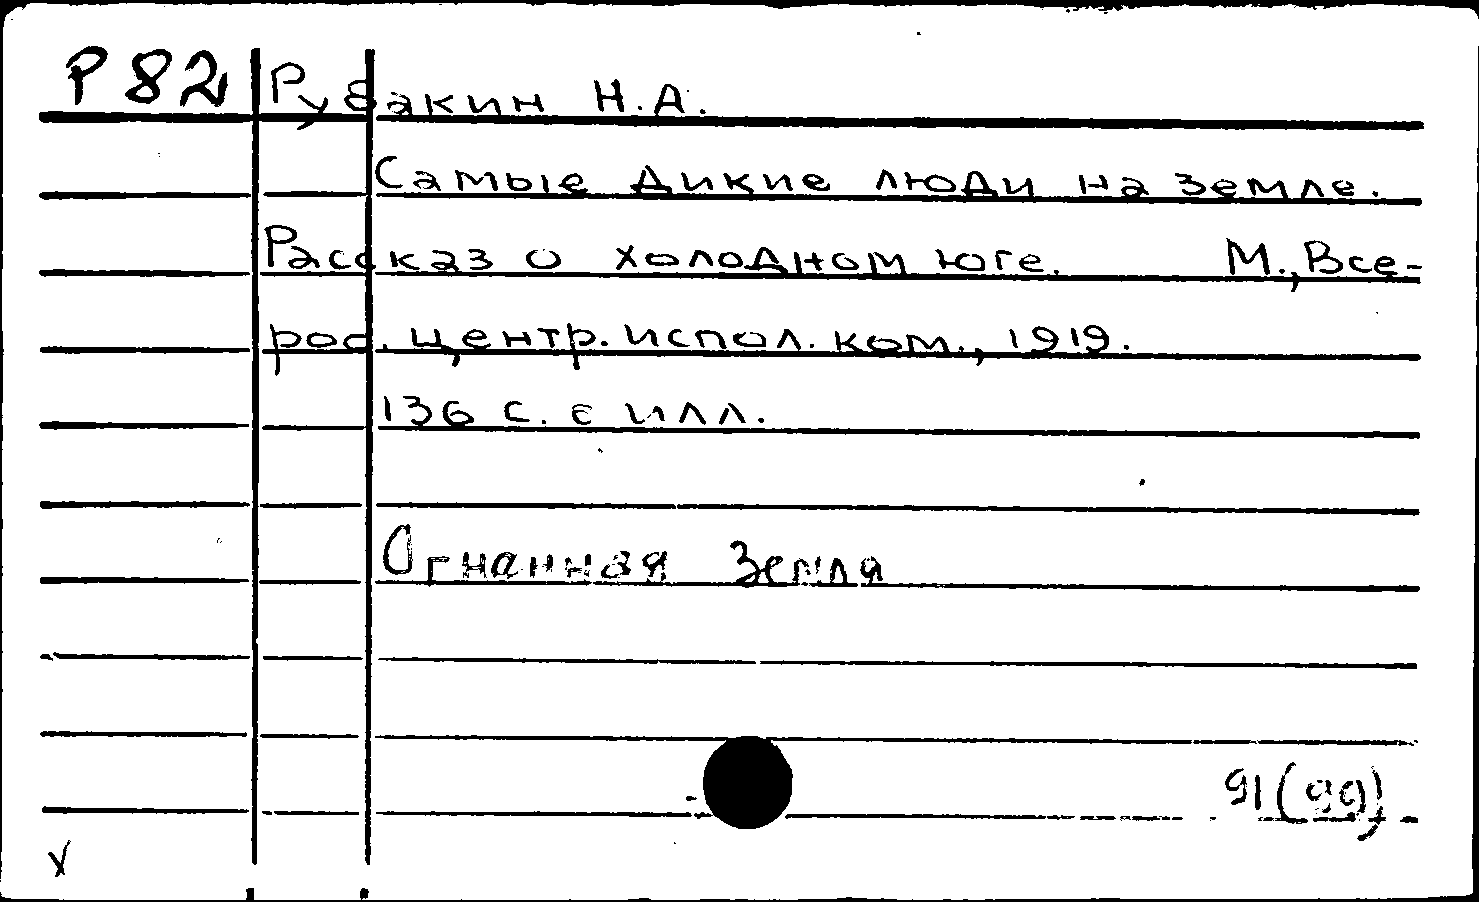 Р82 Рубакин Н.А.
Самые дикие люди на земле.
Рассказ о холодном юге. М., Все-
рос. центр. испол. ком., 1919.
136 с. с илл.
Огнанная Земля
91(99)